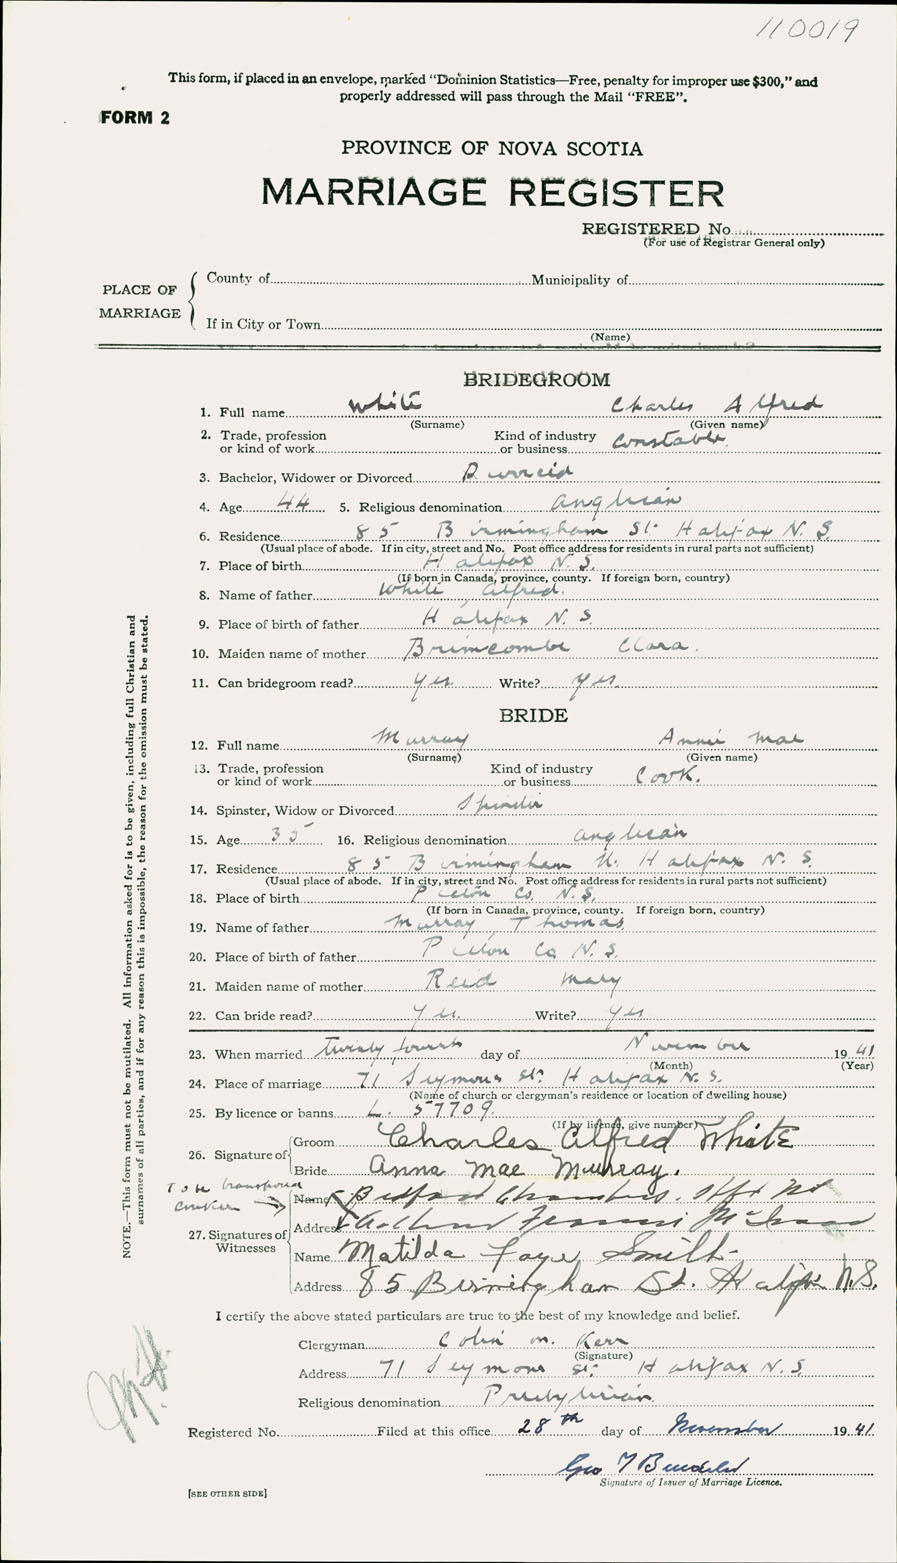 110019
This form, if placed in an envelope, marked "Dominion Statistics—Free, penalty for improper use $300," and
properly addressed will pass through the Mail "FREE".
FORM 2
PROVINCE OF NOVA SCOTIA
MARRIAGE REGISTER
REGISTERED No.
(For use of Registrar General only)
PLACE OF MARRIAGE
County of Municipality of
If in City or Town
(Name)
BRIDEGROOM
1. Full name White Charles Alfred
(Surname) (Given name)
2. Trade, profession or kind of work Kind of industry or business Constable
3. Bachelor, Widower or Divorced
4. Age 44 5. Religious denomination Anglican
6. Residence 85 Birmingham St. Halifax N.S.
(Usual place of abode. If in city, street and No. Post office address for residents in rural parts not sufficient)
7. Place of birth Halifax N.S.
(If born in Canada, province, county. If foreign born, country)
8. Name of father White, Alfred.
9. Place of birth of father Halifax N.S.
10. Maiden name of mother Brimcombe Clara.
11. Can bridegroom read? Yes. Write? Yes.
BRIDE
12. Full name Murray Annie Mae
(Surname) (Given name)
13. Trade, profession or kind of work Kind of industry or business Cook.
14. Spinster, Widow or Divorced Spinster
15. Age 35 16. Religious denomination Anglican
17. Residence 85 Birmingham St. Halifax N.S.
(Usual place of abode. If in city, street and No. Post office address for residents in rural parts not sufficient)
18. Place of birth Pictou Co. N.S.
(If born in Canada, province, county. If foreign born, country)
19. Name of father Murray, Thomas
20. Place of birth of father Pictou Co. N.S.
21. Maiden name of mother Reid Mary
22. Can bride read? Yes. Write? Yes
23. When married twenty fourth day of November 1941
(Month) (Year)
24. Place of marriage 71 Seymour St. Halifax N.S.
(Name of church or clergyman's residence or location of dwelling house)
25. By licence or banns L. 57709.
(If by licence, give number)
26. Signature of
Groom Charles Alfred White
Bride Anna Mae Murray.
To be transposed
27. Signatures of Witnesses
Name Bedford Chambers. Hfx NS
Address Arthur Francis
Name Matilda Faye Smith
Address 85 Birmingham St. Halifax N.S.
I certify the above stated particulars are true to the best of my knowledge and belief.
Clergyman Colin M. Kerr
(Signature)
Address 71 Seymour St. Halifax N.S.
Religious denomination Presbyterian
Registered No. Filed at this office 28th day of November 1941
Geo
Signature of Issuer of Marriage Licence.
[SEE OTHER SIDE]
NOTE.—This form must not be mutilated. All information asked for is to be given, including full Christian and
surnames of all parties, and if for any reason this is impossible, the reason for the omission must be stated.